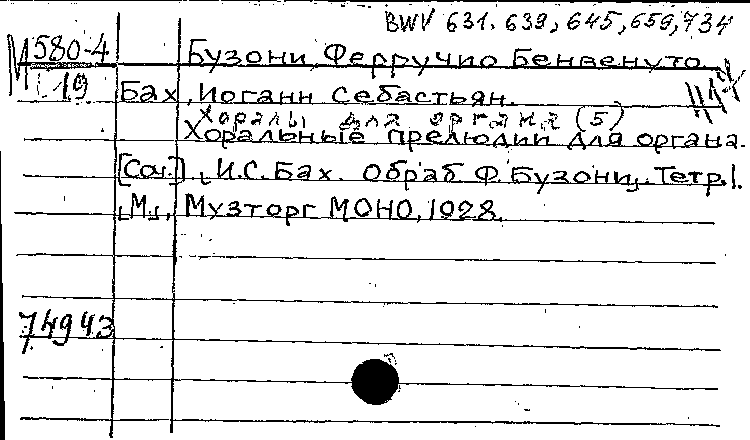 BWV 631. 639, 645, 659, 734
М 580-4 Бузони Ферруччо Бенвенуто
19
Бах, Иоганн Себастьян.
Хоралы для органа (5)
Хоральные прелюдии для органа.
[Соч.] И.С. Бах. Обраб Ф. Бузони. Тетр. 1.
[М], Музторг МОНО, 1928.
74943